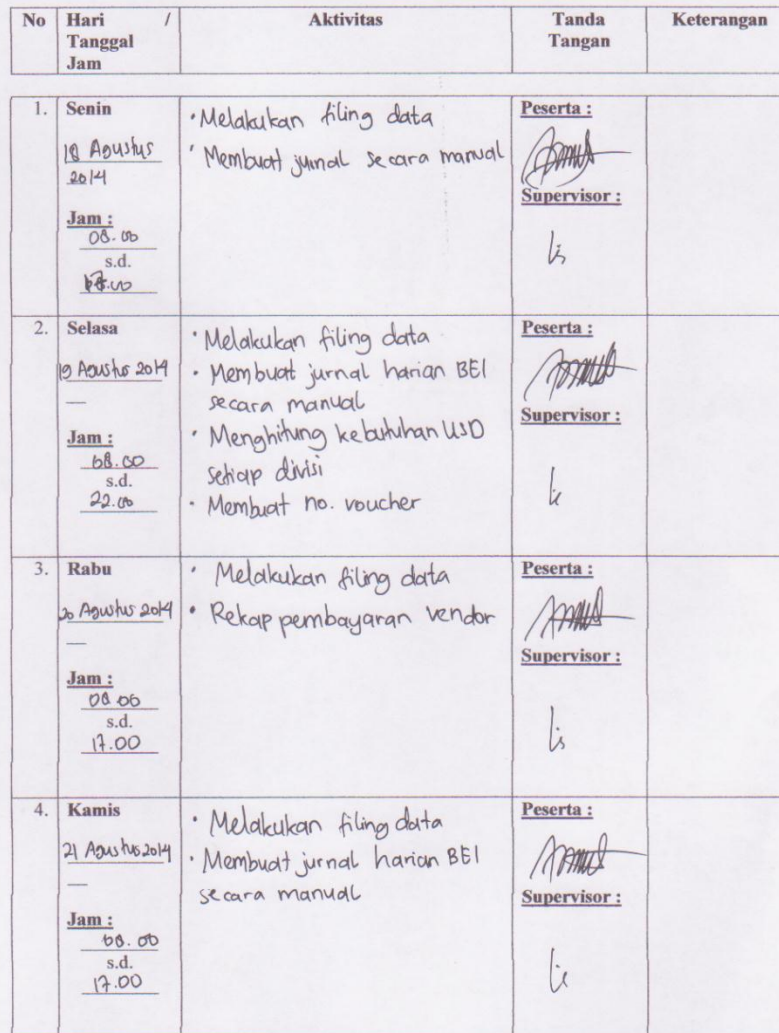 No Hari / Tanggal Jam Aktivitas Tanda Tangan Keterangan
1. Senin
18 Agustus
2014
Jam :
08.00
s.d.
· Melakukan filing data
· Membuat jurnal secara manual
Peserta :
Supervisor :
lis
2. Selasa
19 Agustus 2014
Jam :
08.00
s.d.
22.00
· Melakukan filing data
· Membuat jurnal harian BEI
secara manual
· Menghitung kebutuhan USD
setiap divisi
· Membuat no. voucher
Peserta :
Supervisor :
3. Rabu
20 Agustus 2014
Jam :
08.00
s.d.
17.00
· Melakukan filing data
· Rekap pembayaran vendor
Peserta :
Supervisor :
lis
4. Kamis
21 Agustus 2014
Jam :
08.00
s.d.
17.00
· Melakukan filing data
· Membuat jurnal harian BEI
secara manual
Peserta :
Supervisor :